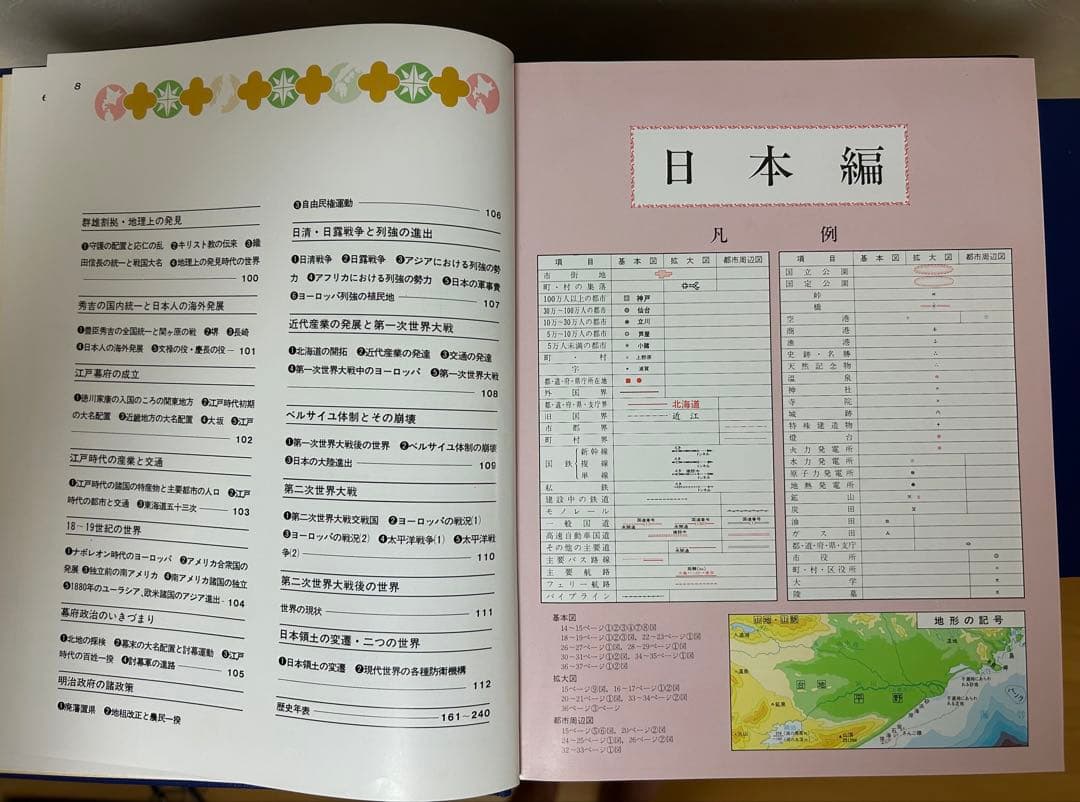 8
群雄割拠・地理上の発見
❶守護の配置と応仁の乱 ❷キリスト教の伝来 ❸織
田信長の統一と戦国大名 ❹地理上の発見時代の世界
100
秀吉の国内統一と日本人の海外発展
❶豊臣秀吉の全国統一と関ヶ原の戦 ❷堺 ❸長崎
❹日本人の海外発展 ❺文禄の役・慶長の役 101
江戸幕府の成立
❶徳川家康の入国のころの関東地方 ❷江戸時代初期
の大名配置 ❸近畿地方の大名配置 ❹大坂 ❺江戸
102
江戸時代の産業と交通
❶江戸時代の諸国の特産物と主要都市の人口 ❷江戸
時代の都市と交通 ❸東海道五十三次 103
18〜19世紀の世界
❶ナポレオン時代のヨーロッパ ❷アメリカ合衆国の
発展 ❸独立前の南アメリカ ❹南アメリカ諸国の独立
❺1880年のユーラシア、欧米諸国のアジア進出 104
幕府政治のいきづまり
❶北地の探検 ❷幕末の大名配置と討幕運動 ❸江戸
時代の百姓一揆 ❹討幕軍の進路 105
明治政府の諸政策
❶廃藩置県 ❷地租改正と農民一揆
❸自由民権運動 106
日清・日露戦争と列強の進出
❶日清戦争 ❷日露戦争 ❸アジアにおける列強の勢
力 ❹アフリカにおける列強の勢力 ❺日本の軍事費
❻ヨーロッパ列強の植民地 107
近代産業の発展と第一次世界大戦
❶北海道の開拓 ❷近代産業の発達 ❸交通の発達
❹第一次世界大戦中のヨーロッパ ❺第一次世界大戦
108
ベルサイユ体制とその崩壊
❶第一次世界大戦後の世界 ❷ベルサイユ体制の崩壊
❸日本の大陸進出 109
第二次世界大戦
❶第二次世界大戦交戦国 ❷ヨーロッパの戦況(1)
❸ヨーロッパの戦況(2) ❹太平洋戦争(1) ❺太平洋戦
争(2) 110
第二次世界大戦後の世界
世界の現状 111
日本領土の変遷・二つの世界
❶日本領土の変遷 ❷現代世界の各種防衛機構
112
歴史年表 161〜240
日本編
凡例
項目 基本図 拡大図 都市周辺図
市街地
町・村の集落
100万人以上の都市 神戸
30万〜100万人の都市 仙台
10万〜30万人の都市 立川
5万〜10万人の都市 芦屋
5万人未満の都市 小諸
町・村 上野原
字 浦賀
都・道・府・県庁所在地
外国界
都・道・府・県・支庁界 北海道
旧国界 近江
市郡界
町村界
国鉄
新幹線
複線
単線
私鉄
建設中の鉄道
モノレール
一般国道
高速自動車国道
その他の主要道
主要バス路線
主要航路
フェリー航路
パイプライン
項目 基本図 拡大図 都市周辺図
国立公園
国定公園
峠
橋
空港
商港
漁港
史跡・名勝
天然記念物
温泉
神社
寺院
城跡
特殊建造物
燈台
火力発電所
水力発電所
原子力発電所
地熱発電所
鉱山
炭田
油田
ガス田
都・道・府・県・支庁
市役所
町・村・区役所
大学
陵墓
基本図
14〜15ページ①②③④⑦⑧図
18〜19ページ①②③図, 22〜23ページ①図
26〜27ページ①図, 28〜29ページ①図
30〜31ページ①②図, 34〜35ページ①図
36〜37ページ①②図
拡大図
15ページ⑨図, 16〜17ページ①②図
20〜21ページ①図, 33〜34ページ②図
36ページ③ページ
都市周辺図
15ページ⑤⑥図, 20ページ②図
24〜25ページ①図, 26ページ②図
32〜33ページ①図
地形の記号
山地・山脈
台地
平野